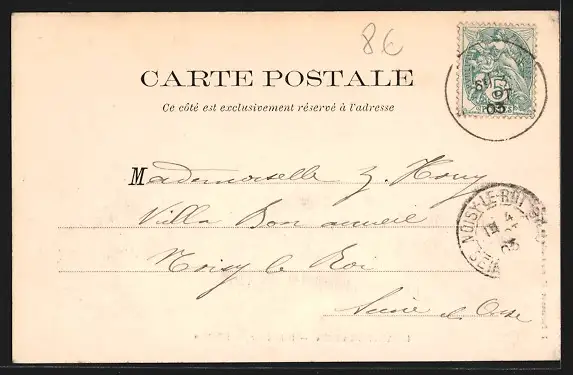 86
CARTE POSTALE
Ce côté est exclusivement réservé à l'adresse
Mademoiselle
Villa Bon accueil
Noisy le Roi
Seine et Oise
NOISY-LE-ROI
03
5